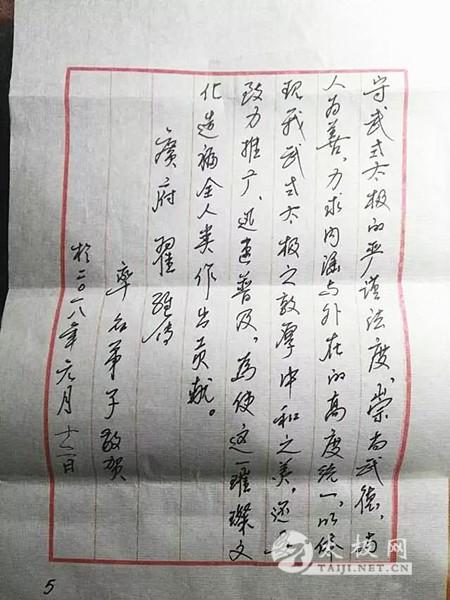 守武式太极的严谨法度、崇尚武德，与
人为善，力求内涵与外在的高度统一，以体
现我武式太极之敦厚中和之美，还
致力推广、迅速普及，为使这一璀璨文
化造福全人类作出贡献。
廣府翟维传
率弟子敬贺
於二〇一八年元月十二日
5
太极网
TAIJI.NET.CN